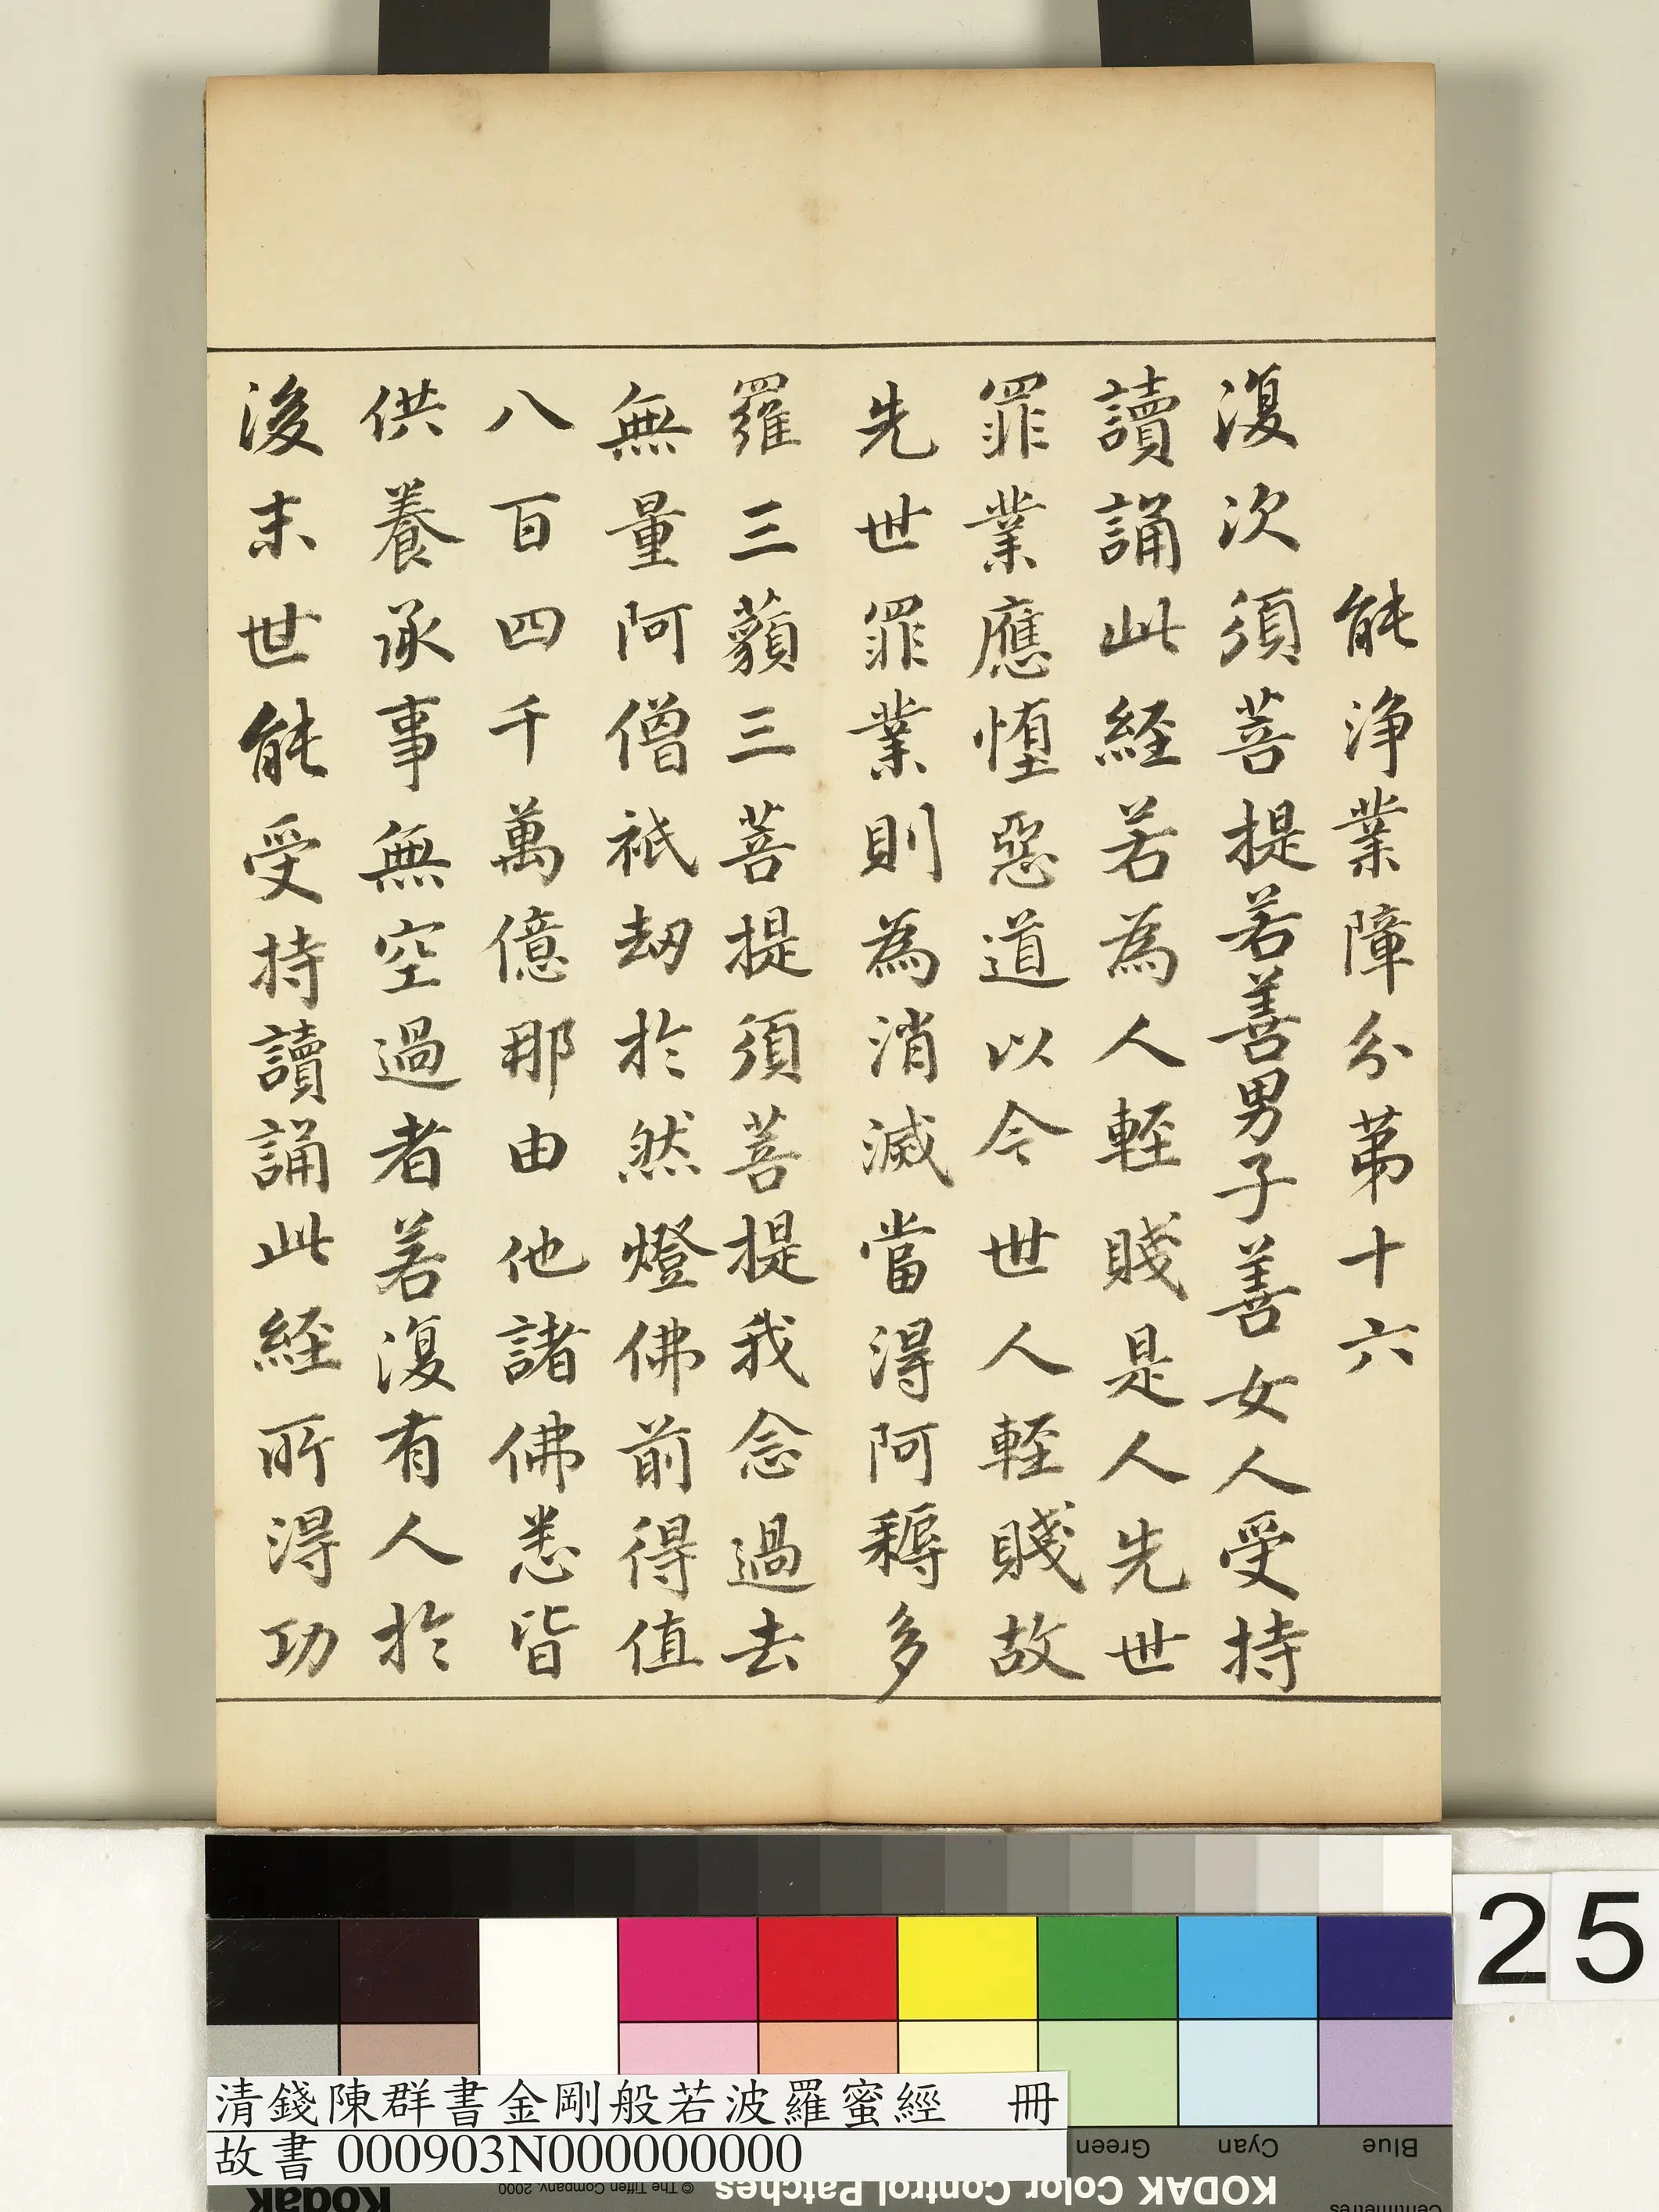 能淨業障分第十六
復次須菩提若善男子善女人受持
讀誦此經若為人輕賤是人先世
罪業應墮惡道以今世人輕賤故
先世罪業則為消滅當得阿耨多
羅三藐三菩提須菩提我念過去
無量阿僧祇劫於然燈佛前得值
八百四千萬億那由他諸佛悉皆
供養承事無空過者若復有人於
後末世能受持讀誦此經所得功
25
清錢陳群書金剛般若波羅蜜經 冊
故書 000903N000000000
Green Cyan Blue
Kodak
© The Tiffen Company, 2000
KODAK Color Control Patches
Centimetres